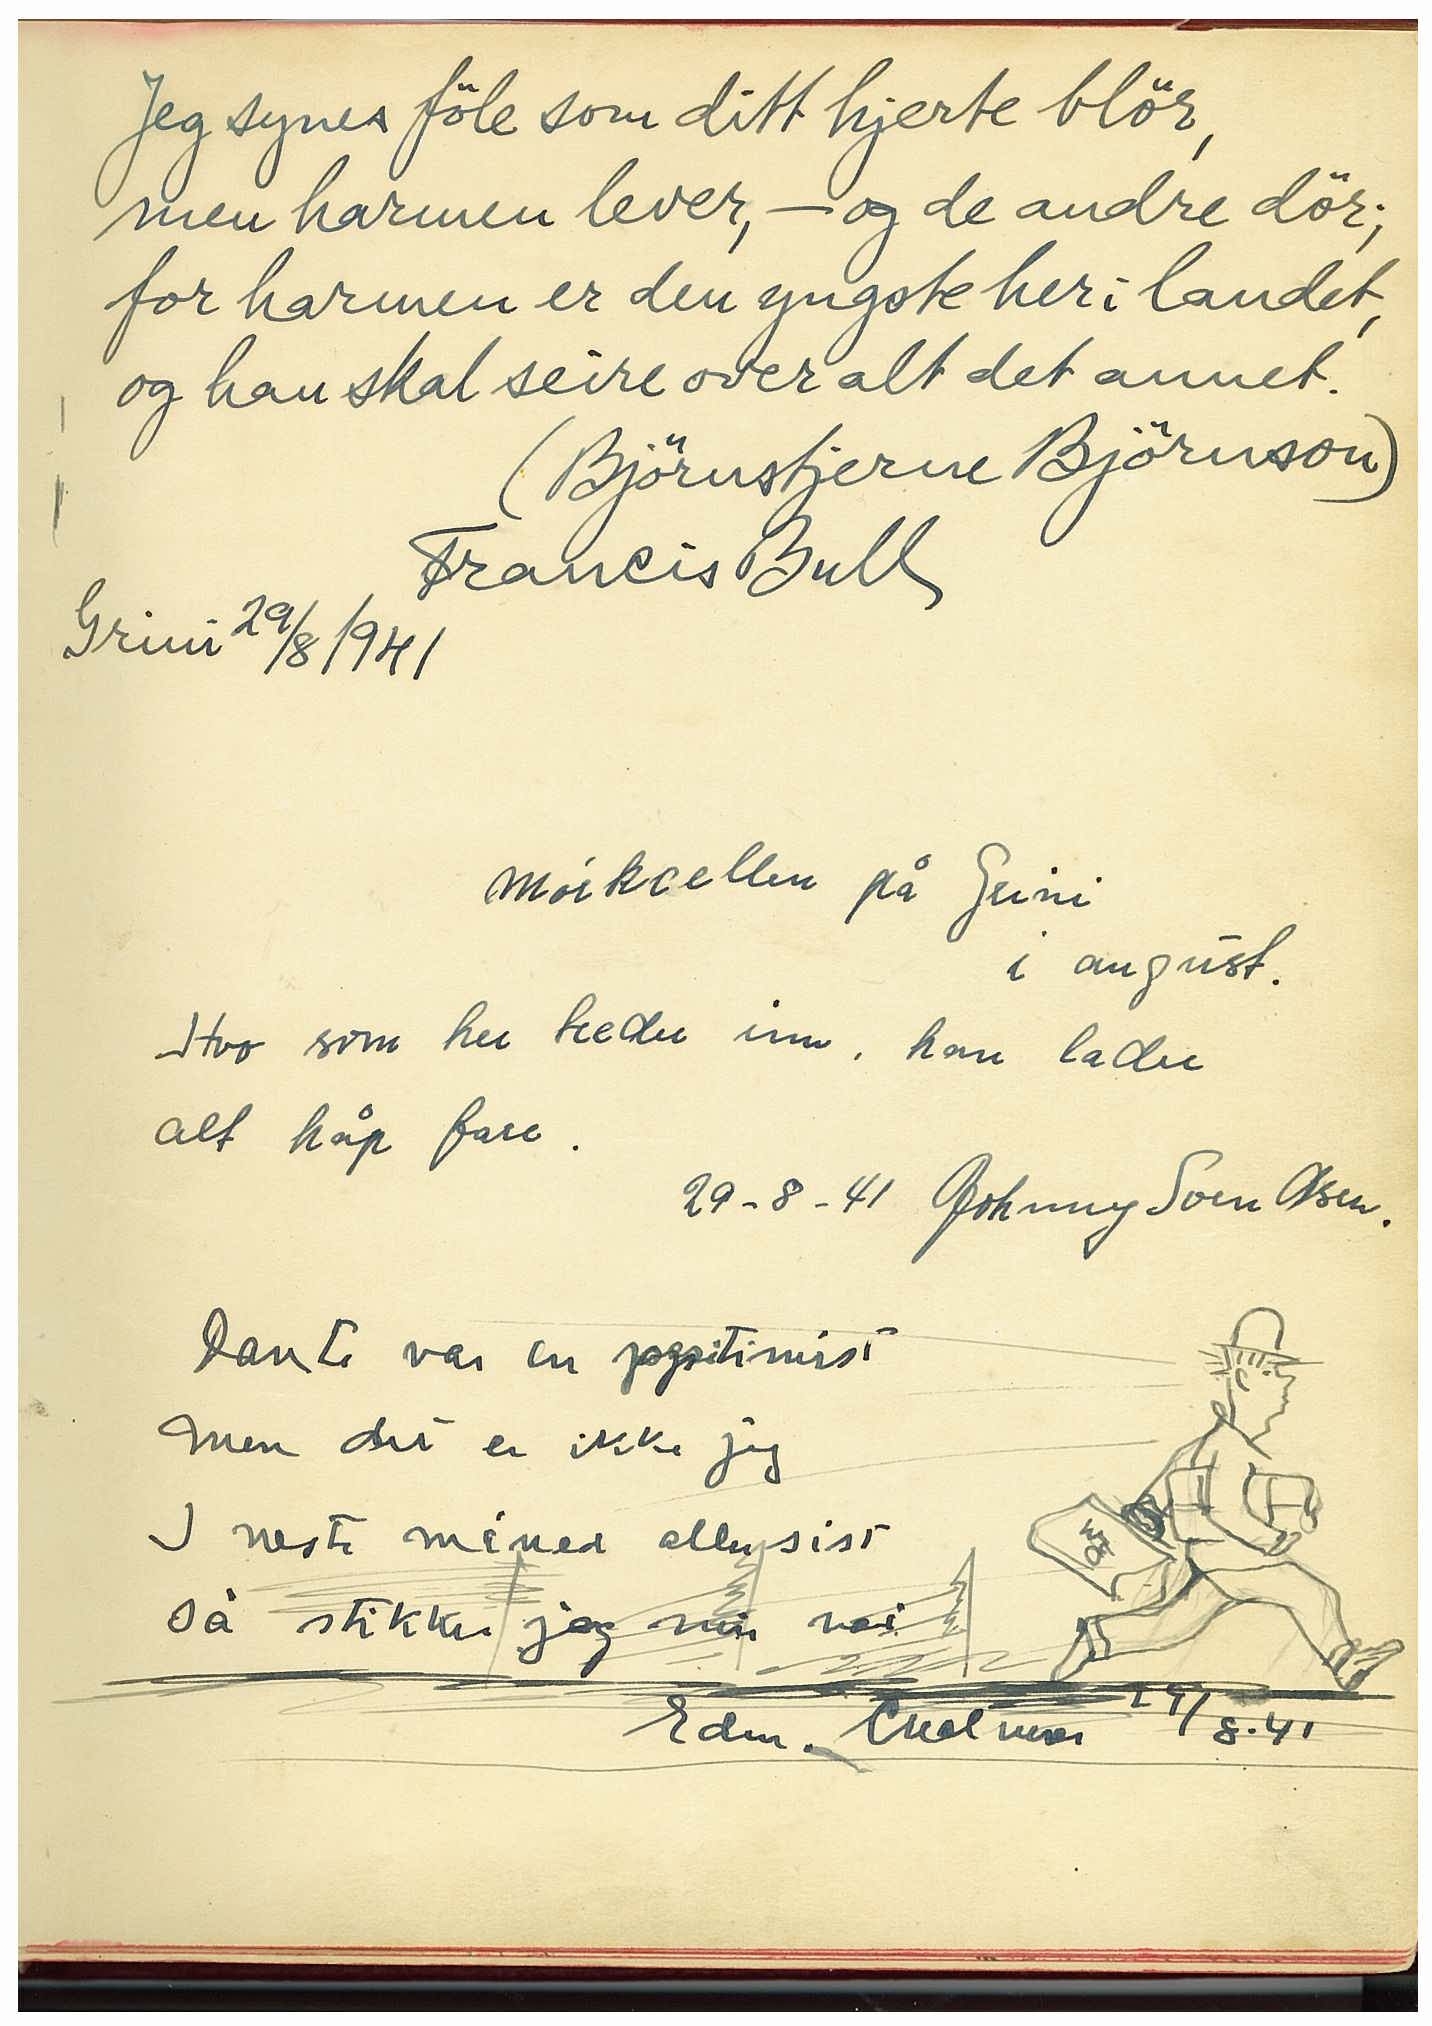 Jeg synes föle som ditt hjerte blör,
men harmen lever, — og de andre dör;
for harmen er den yngste her i landet,
og han skal seire over alt det annet.
(Björnstjerne Björnson)
Francis Bull
Grini 29/8 1941
Mörkcellen på Grini
i august.
Hvo som her treder inn, han lader
alt håp fare.
29-8-41 Johnny Sven Olsen.
Dante var en
Men det er ikke jeg
I neste måned aller sist
Så stikker jeg min vei
Edm. 29/8.41